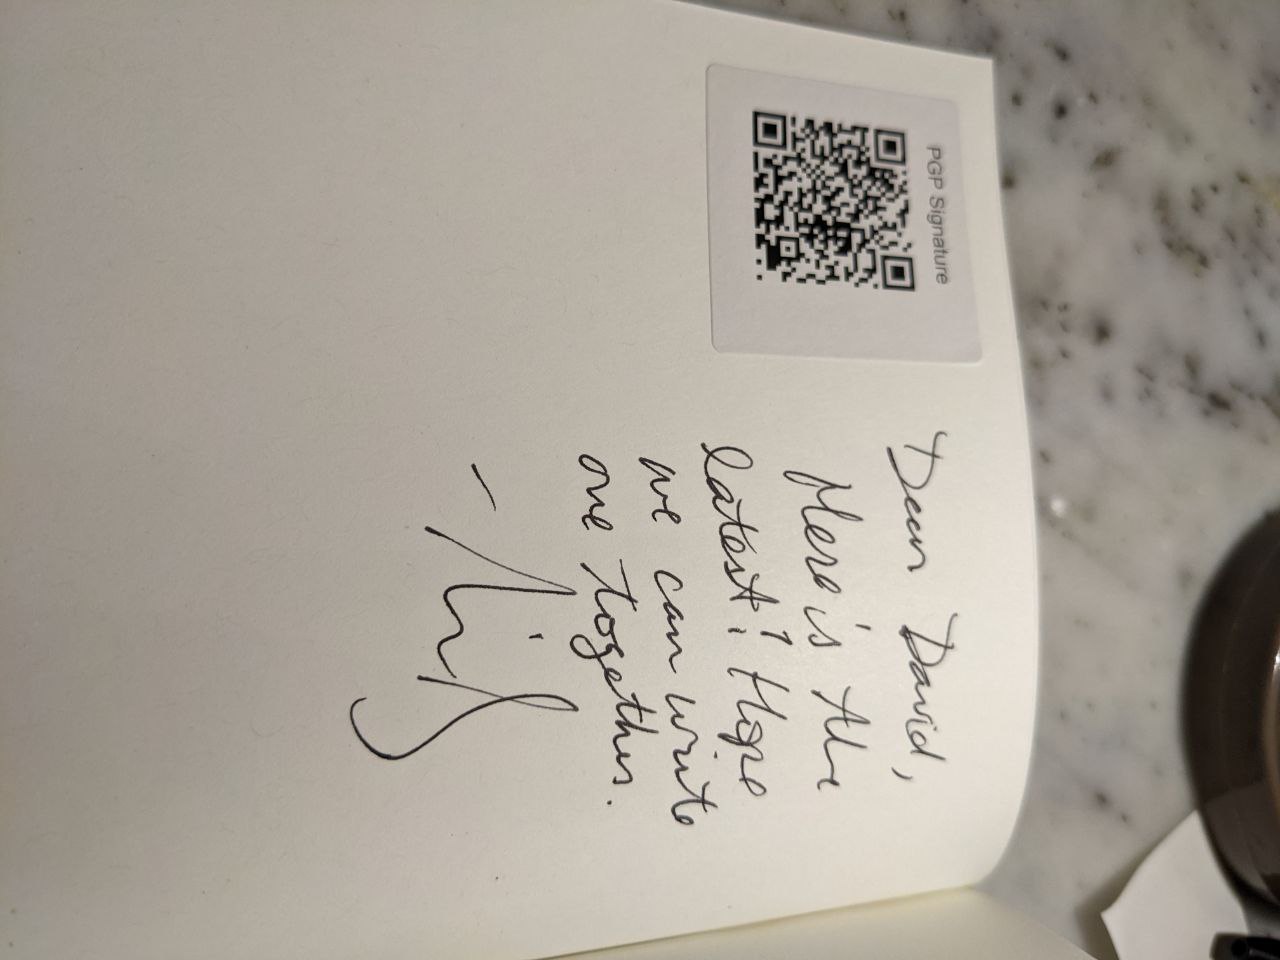 PGP Signature
Dear David,
Here is the
latest! Hope
we can write
one together.